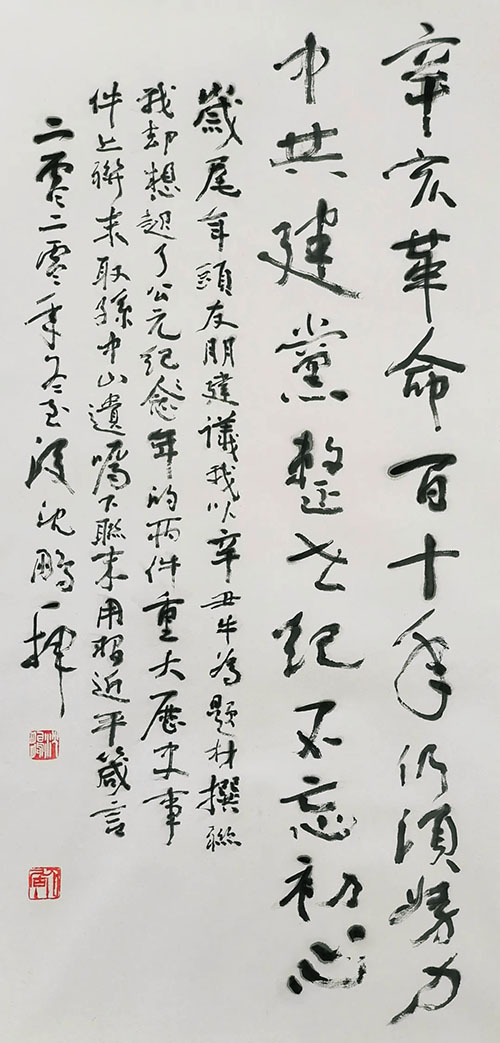 辛亥革命百十年仍須努力
中共建黨整世紀不忘初心
歲尾年頭友朋建議我以辛丑牛為題材撰聯
我却想起了公元紀念年的兩件重大歷史事
件上聯末取孫中山遺囑下聯末用習近平箴言
二零二零年冬至後沈鵬一揮
沈鵬